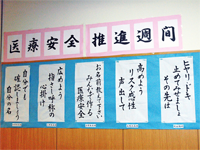 医療安全推進週間
ヒヤリ・ドキ
止めてみせましょう
その先は
高めよう
リスク感性
声出して
お名前をどうぞ
みんなで作る
医療安全
広めよう
指さし呼称の
心掛け
自分でも
確認しましょう
自分の名